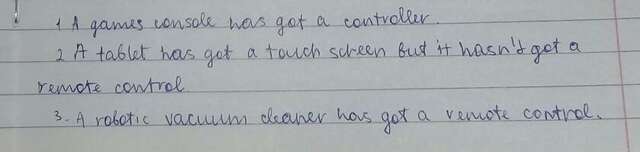 1 A games console has got a controller.
2 A tablet has got a touch screen but it hasn't got a
remote control
3. A robotic vacuum cleaner has got a remote control.